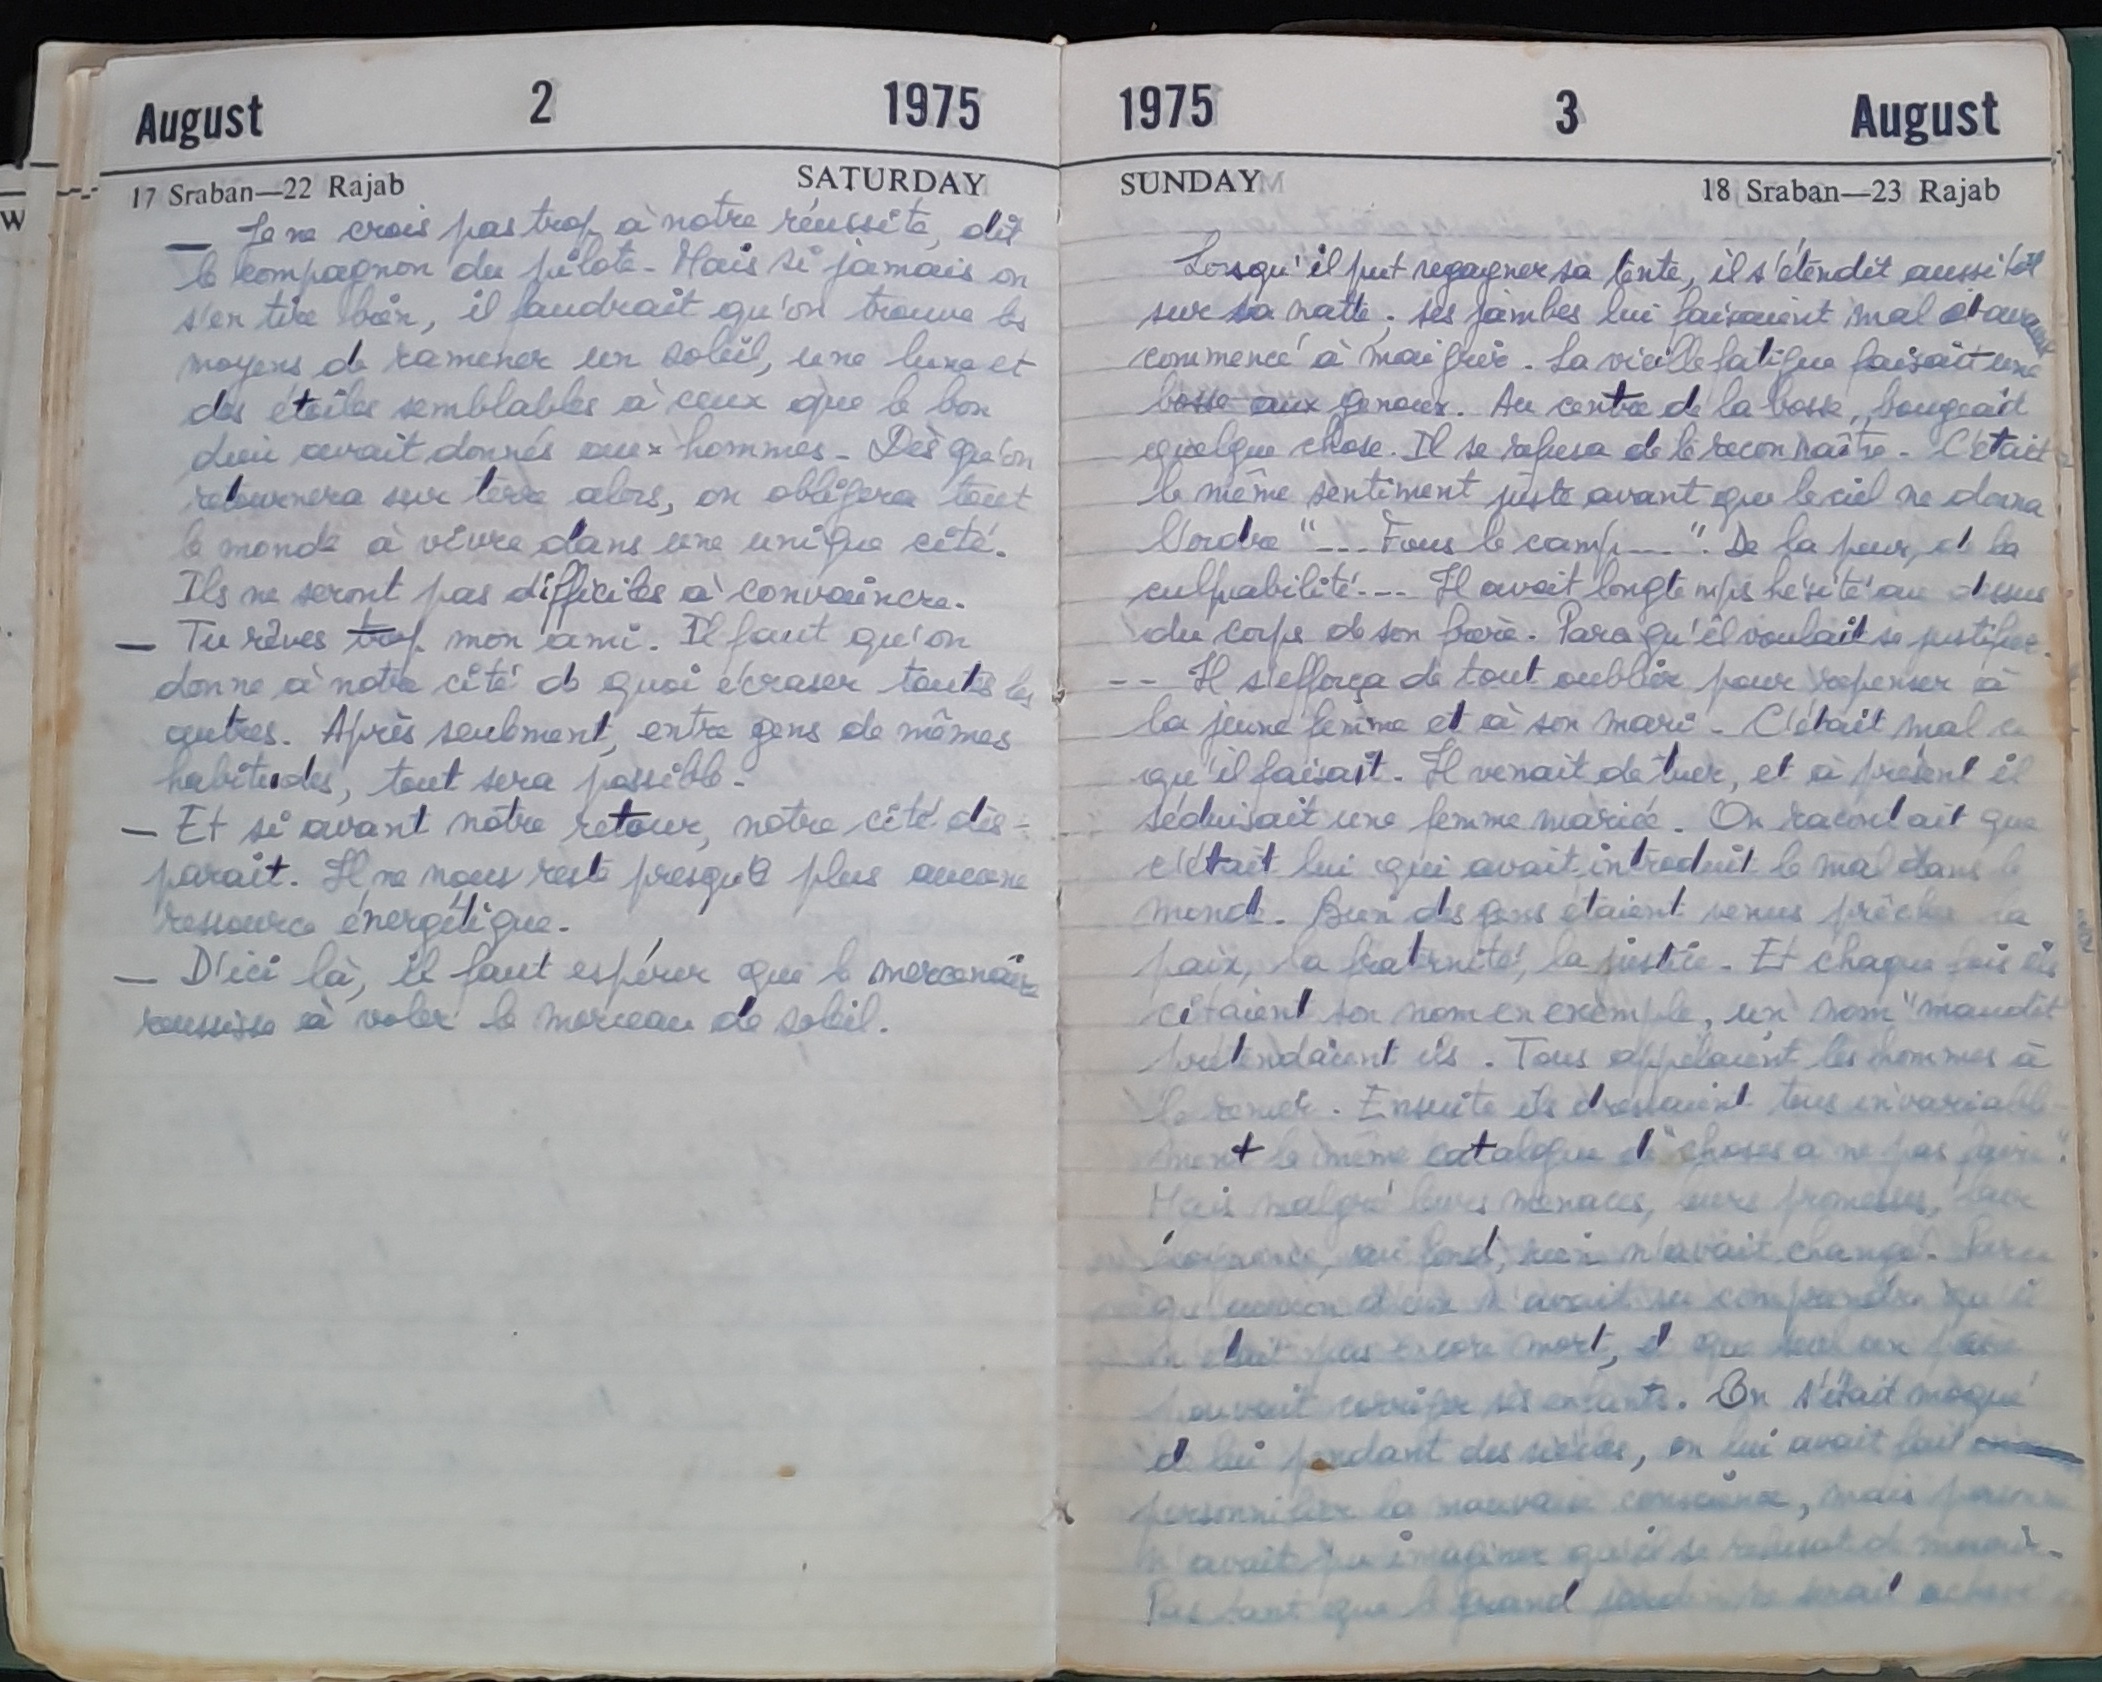 August 2 1975
17 Sraban—22 Rajab SATURDAY
— Je ne crois pas trop à notre réussite, dit
le compagnon du pilote. Mais si jamais on
s'en tire bien, il faudrait qu'on trouve les
moyens de ramener un soleil, une lune et
des étoiles semblables à ceux que le bon
dieu avait donnés aux hommes. Dès qu'on
retournera sur terre alors, on obligera tout
le monde à vivre dans une unique cité.
Ils ne seront pas difficiles à convaincre.
— Tu rêves trop mon ami. Il faut qu'on
donne à notre cité de quoi écraser toutes les
autres. Après seulement, entre gens de mêmes
habitudes, tout sera possible.
— Et si avant notre retour, notre cité dis-
parait. Il ne nous reste presque plus aucune
ressource énergétique.
— D'ici là, il faut espérer que le mercenaire
reussisse à voler le morceau de soleil.
1975 3 August
SUNDAY 18 Sraban—23 Rajab
Lorsqu'il put regagner sa tente, il s'étendit aussitôt
sur sa natte ; ses jambes lui faisaient mal et avaient
commencé à maigrir. La vieille fatigue faisait une
bosse aux genoux. Au centre de la bosse, bougeait
quelque chose. Il se refusa de le reconnaître. C'était
le même sentiment juste avant que le ciel ne donna
l'ordre "--- Fous le camp ---". De la peur, et la
culpabilité --- Il avait longtemps hésité au dessus
du corps de son frère. Parce qu'il voulait se justifier.
-- Il s'efforça de tout oublier pour repenser à
la jeune femme et à son mari. C'était mal ce
qu'il faisait. Il venait de tuer, et à présent il
séduisait une femme mariée. On racontait que
c'était lui qui avait introduit le mal dans le
monde. Bien des gens étaient venus prêcher la
paix, la fraternité, la justice. Et chaque fois ils
citaient son nom en exemple, un nom "maudit
prétendaient ils. Tous appelaient les hommes à
le renier. Ensuite ils dressaient tous invariable-
ment le même catalogue de "choses à ne pas faire".
Mais malgré leurs menaces, leurs promesses, leur
éloquence, au fond, rien n'avait changé. Parce
qu'aucun d'eux n'avait su comprendre qu'il
n'était pas encore mort, et que seul un père
pouvait corriger ses enfants. On s'était moqué
de lui pendant des siècles, on lui avait fait
personnifier la mauvaise conscience, mais personne
n'avait pu imaginer qu'il se refusat de mourir.
Pas tant que le grand jardin ne serait achevé